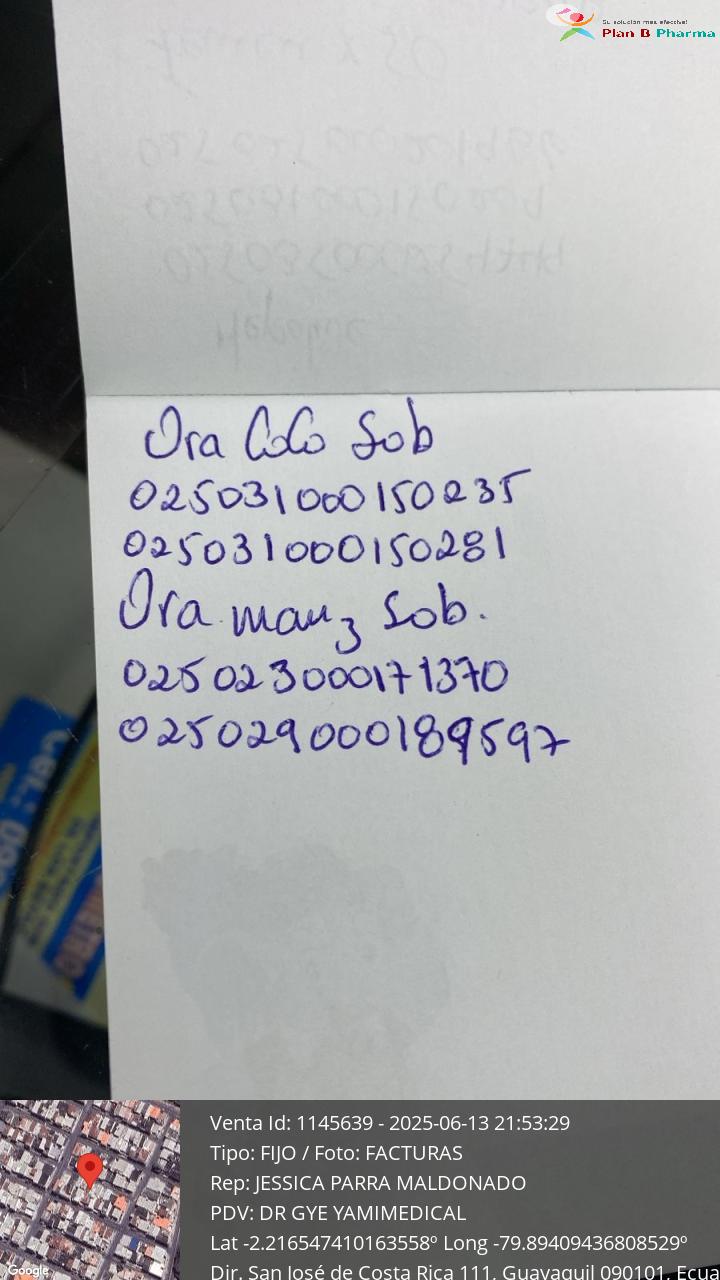 Su solución más efectiva!
Plan B Pharma
Ora CoCo Sob
025031000150235
025031000150281
Ora manz Sob.
025023000171370
025029000189597
Venta Id: 1145639 - 2025-06-13 21:53:29
Tipo: FIJO / Foto: FACTURAS
Rep: JESSICA PARRA MALDONADO
PDV: DR GYE YAMIMEDICAL
Lat -2.216547410163558º Long -79.89409436808529º
Dir. San José de Costa Rica 111, Guayaquil 090101, Ecua
Google